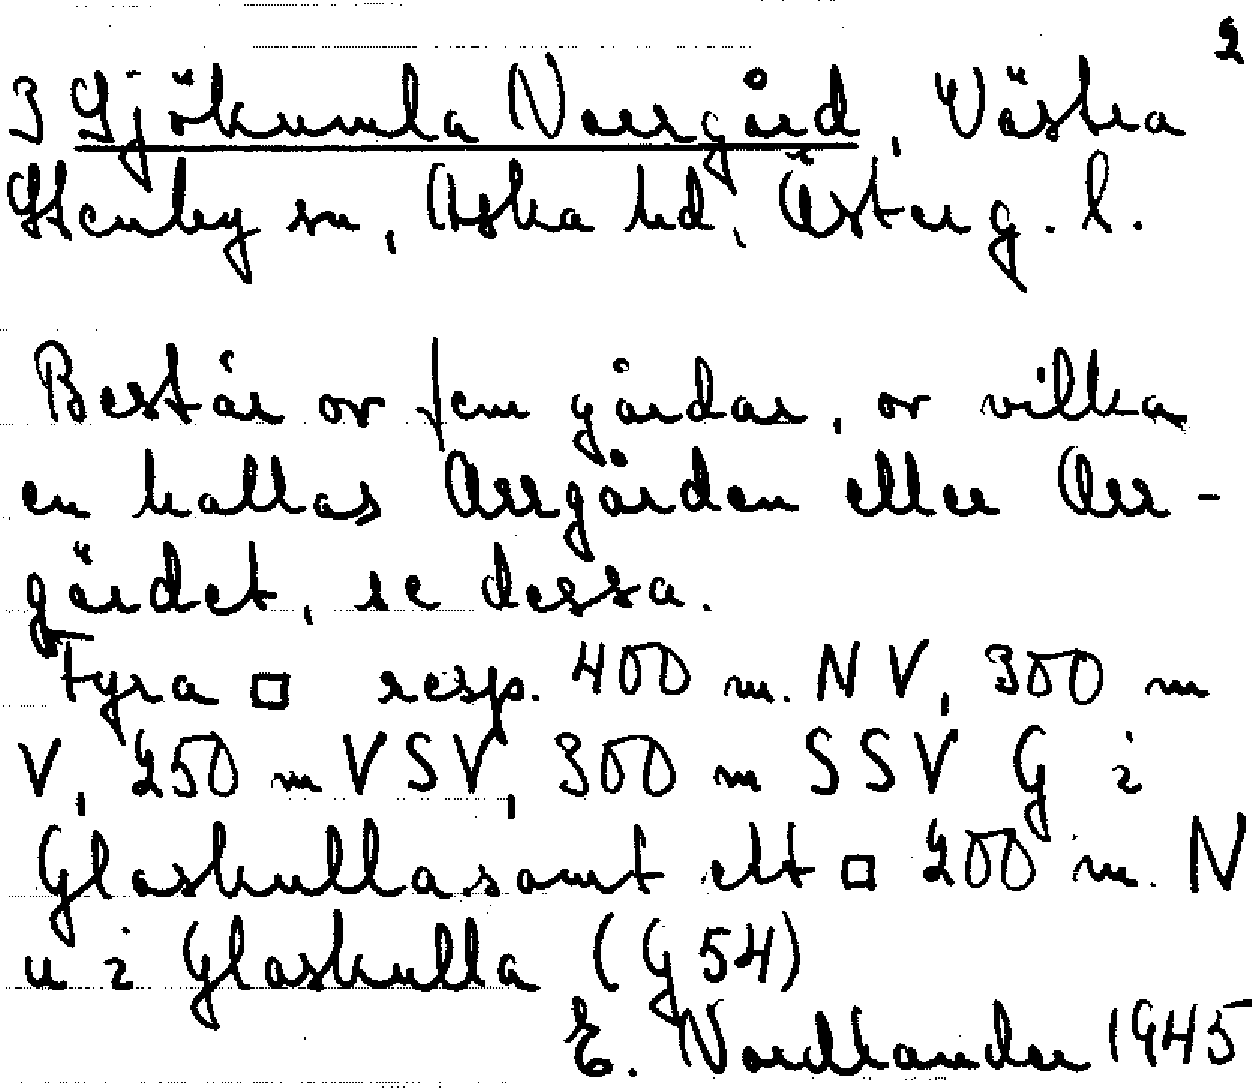 2
3 Sjökumla Norrgård, Västra
Stenby sn, Aska hd, Österg. l.
Består av fem gårdar, av vilka
en kallas Arrgården eller Arr-
gärdet, se dessa.
Fyra □ resp. 400 m. NV, 300 m
V, 250 m VSV, 300 m SSV G i
Glaskulla samt ett □ 200 m. N
u i Glaskulla (G 54)
E. Nordlander 1945